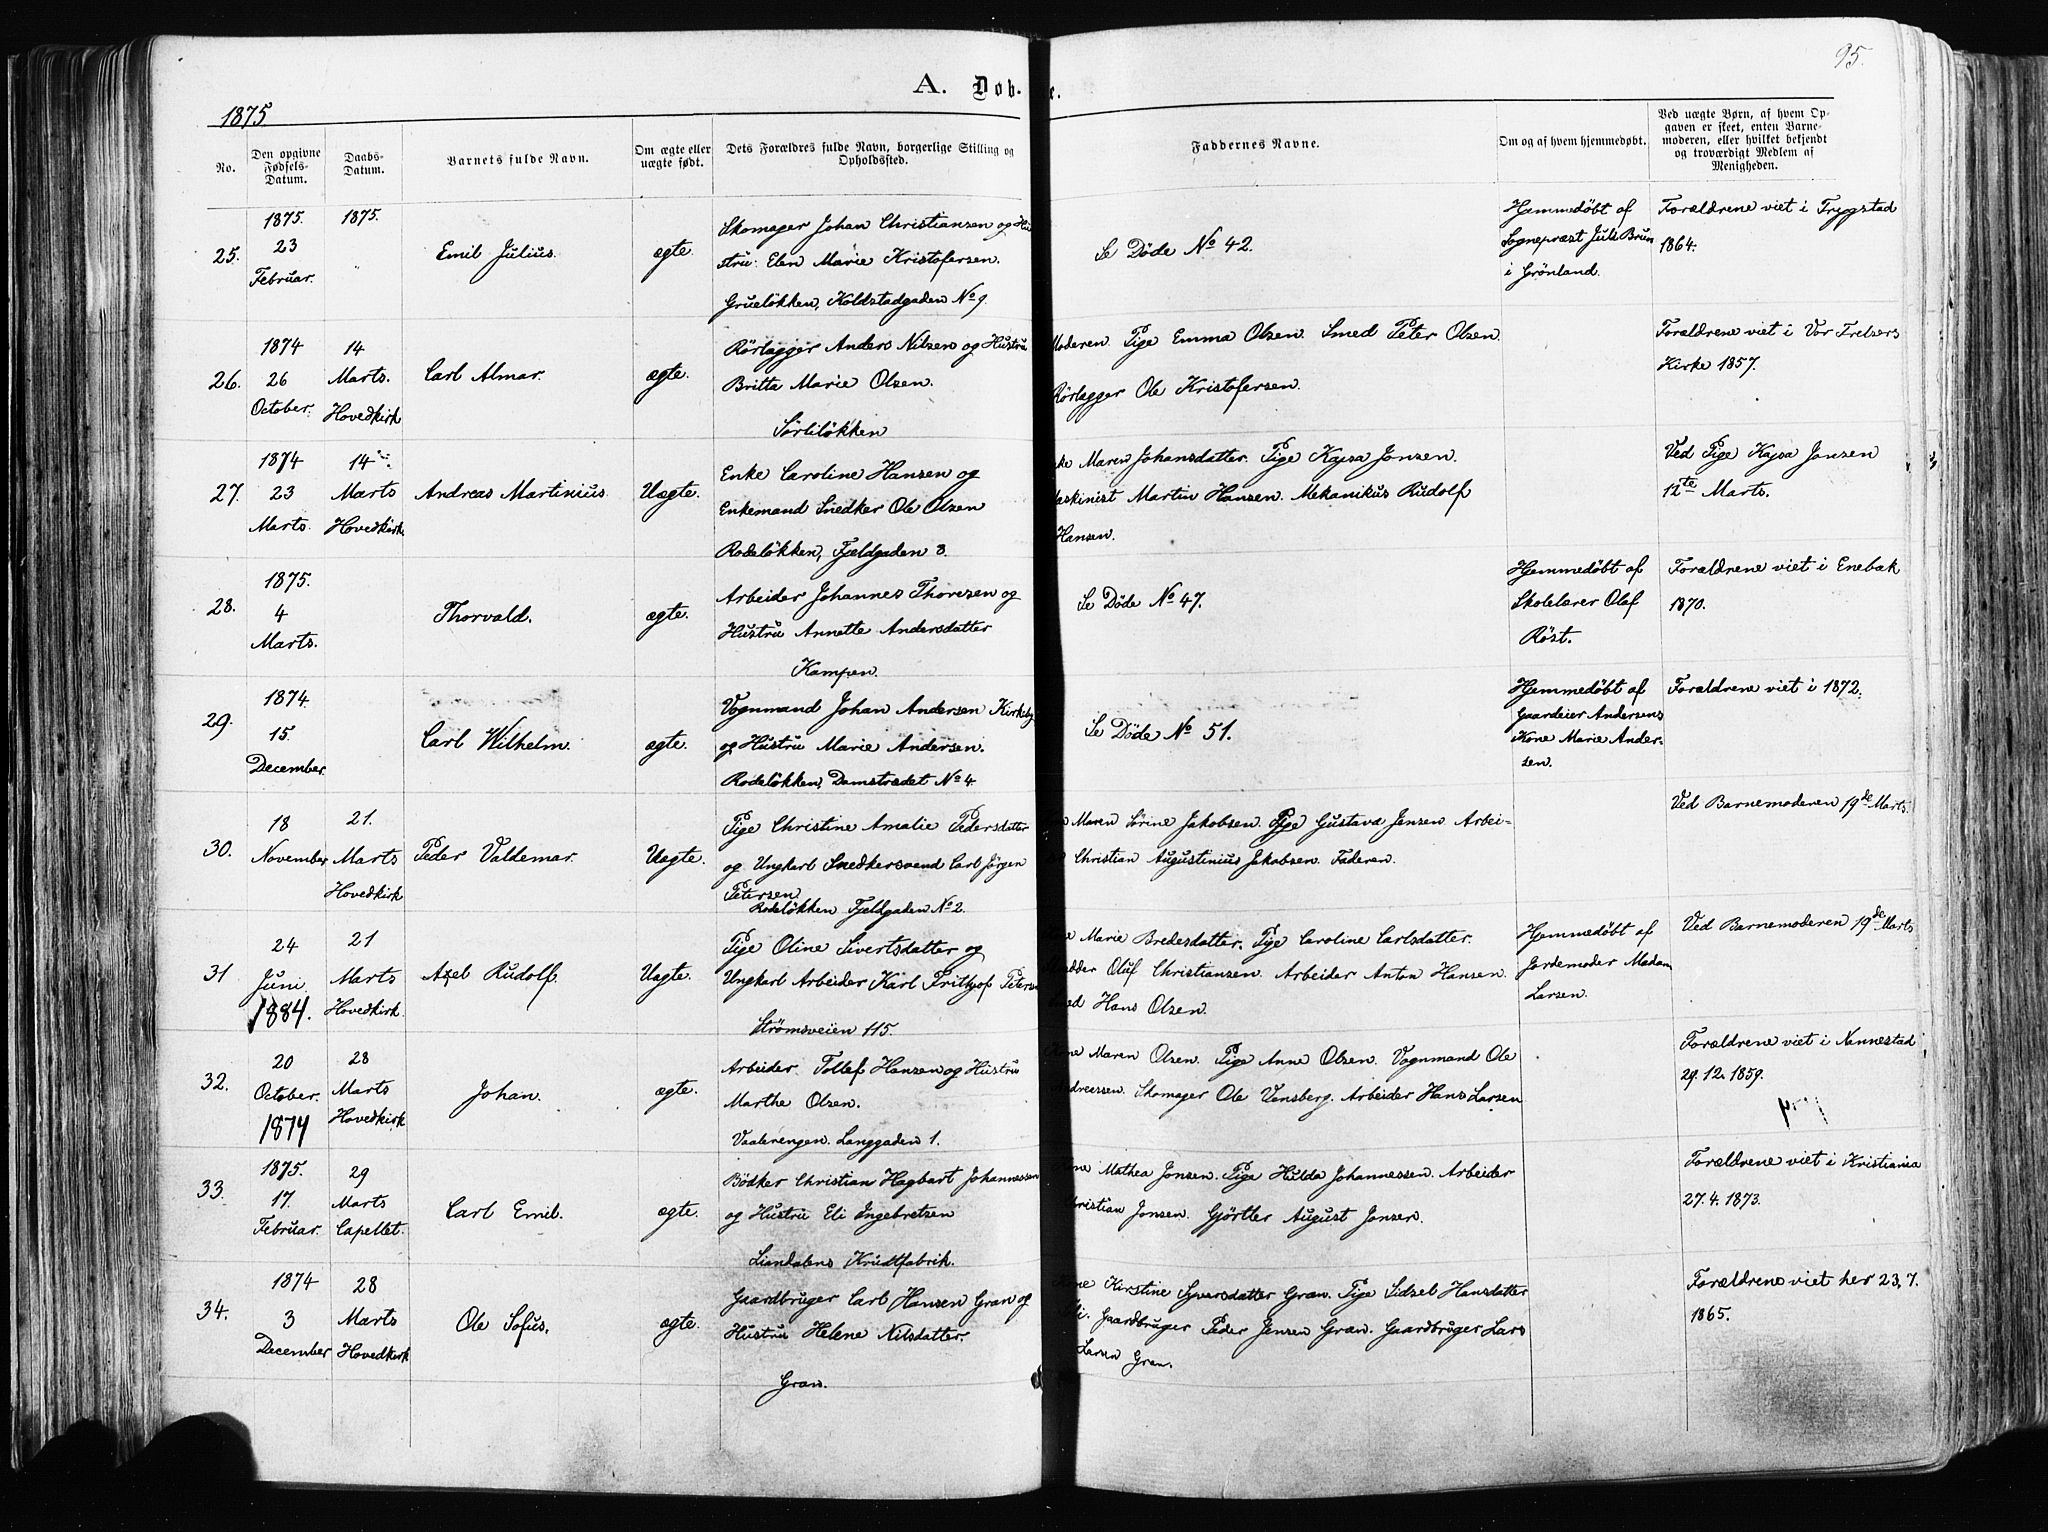 95.
A. Döb- e.
1875
No.
Den opgivne Fødsels-Datum.
Daabs-Datum.
Barnets fulde Navn.
Om ægte eller uægte født.
Dets Forældres fulde Navn, borgerlige Stilling og Opholdssted.
Faddernes Navne.
Om og af hvem hjemmedøbt.
Ved uægte Børn, af hvem Opgaven er skeet, enten Barnemoderen, eller hvilket bekjendt og troværdigt Medlem af Menigheden.
25.
1875.
23
Februar.
1875.
"
Emil Julius.
ægte.
Skomager Johan Christiansen og Hu
stru Elen Marie Kristofersen.
Grueløkken, Koldstadgaden No 9.
Se Döde No 42.
Hjemmedøbt af
Sognepræst Juls Brun
i Grönland.
Forældrene viet i Trygstad
1864.
26.
1874
26
October.
14
Marts.
Hovedkirk
Carl Almar.
ægte.
Rörlægger Anders Nilsen og Hustru
Britta Marie Olsen.
Sörliløkken
Moderen. Pige Emma Olsen. Smed Peter Olsen.
Rörlægger Ole Kristofersen.
Forældrene viet i Vor Frelsers
Kirke 1857.
27.
1874
23
Marts.
14
Marts
Hovedkirk.
Andreas Martinius.
Uægte.
Enke Caroline Hansen og
Enkemand Snedker Ole Olsen
Rodeløkken, Fjeldgaden 8
ke Maren Johansdatter. Pige Kajsa Jonsen.
askinist Martin Hansen. Mekanikus Rudolf
Hansen.
Ved Pige Kajsa Jonsen
12te Marts.
28.
1875.
4
Marts.
Thorvald.
ægte.
Arbeider Johannes Thoresen og
Hustru Annette Andersdatter
Kampen.
Se Döde No 47.
Hjemmedøbt af
Skolelærer Olaf
Röst.
Forældrene viet i Enebak
1870.
29.
1874.
15.
December.
Carl Wilhelm.
ægte.
Vognmand Johan Andersen Kirkeby
og Hustru Marie Andersen.
Rodeløkken, Damstrædet No 4.
Se Döde No 51.
Hjemmedøbt af
Gaardeier Andersens
Kone Marie Ander-
sen.
Forældrene viet i 1872.
30.
18
November
21.
Marts
Hovedkirk
Peder Valdemar.
Uægte.
Pige Christine Amalie Pedersdatter
og Ungkarl Snedkersvend Carl Jørgen
Petersen
Rodeløkken Fjeldgaden No 2.
Maren Sörine Jakobsen. Pige Gustava Jensen Arbei-
Christian Augustinius Jakobsen. Faderen.
Ved Barnemoderen 19de Marts
31
24
Juni.
1884.
21
Marts
Hovedkirk.
Axel Rudolf.
Uægte.
Pige Oline Sivertsdatter og
Ungkarl Arbeider Karl Frithjof Peters
Strömsveien 115.
Marie Bredesdatter. Pige Caroline Carlsdatter.
Oluf Christiansen. Arbeider Anton Hansen.
Hans Olsen.
Hjemmedøbt af
Jordemoder Madam
Larsen.
Ved Barnemoderen 19de Marts
32.
20
October.
1874
28
Marts
Hovedkirk
Johan.
ægte.
Arbeider Tollef Hansen og Hustru
Marthe Olsen.
Vaalerengen. Langgaden 1.
Kone Maren Olsen. Pige Anne Olsen. Vognmand Ole
Andreassen. Skomager Ole Vensberg. Arbeider Hans Larsen
Forældrene viet i Nannestad
29. 12. 1859.
33.
1875.
17.
Februar.
29
Marts
Capellet.
Carl Emil.
ægte.
Bödker Christian Hagbart Johannessen
og Hustru Eli Ingebretsen
Liandalens Krudtfabrik.
ne Mathea Jonsen. Pige Hulda Johannessen. Arbeider
hristian Jonsen. Gjörtler August Jonsen.
Forældrene viet i Kristiania
27. 4. 1873.
34.
1874
3
December
28
Marts
Hovedkirk
Ole Sofus.
ægte.
Gaardbruger Carl Hansen Gran og
Hustru Helene Nilsdatter.
Gran.
Kone Kirstine Syversdatter Gran. Pige Sidsel Hansdatter
Gaardbruger Peder Jensen Gran. Gaardbruger Lars
Larsen Gran.
Forældrene viet her 23. 7.
1865.